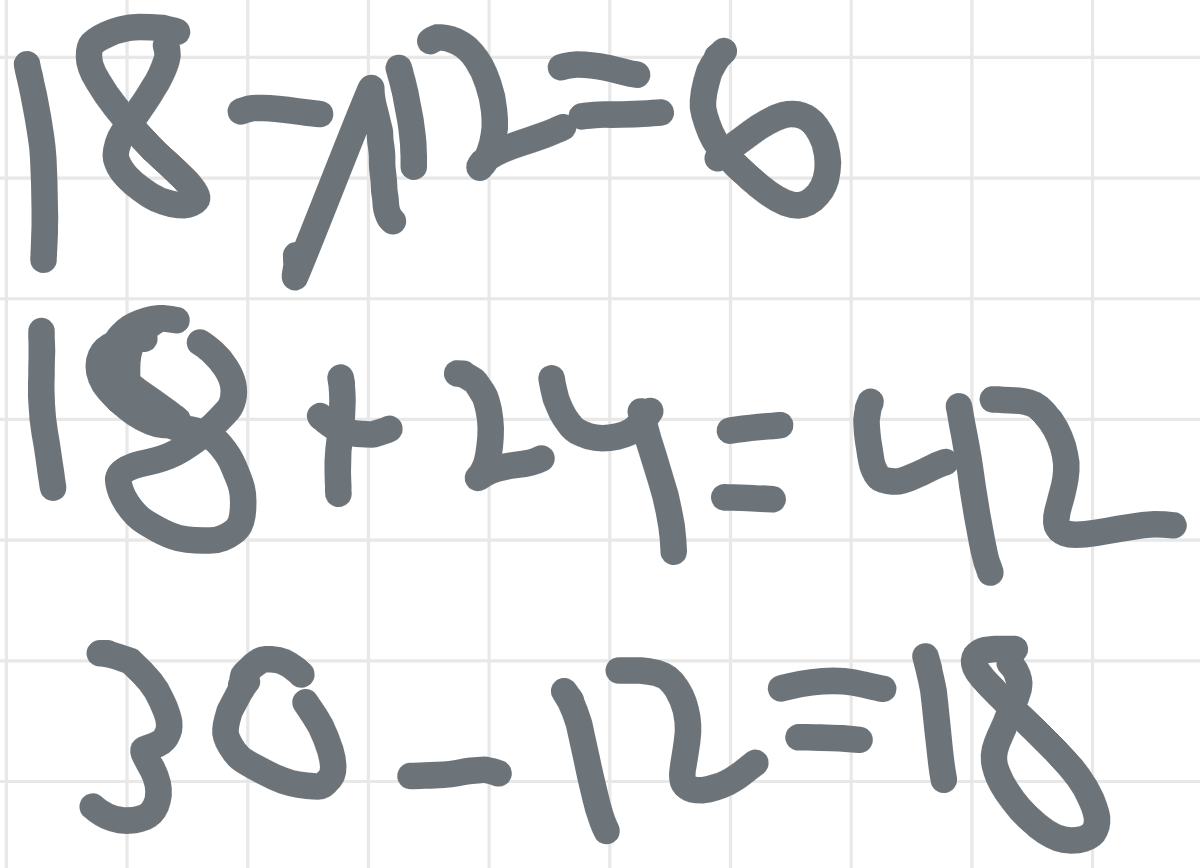 18-12=6
18+24=42
30-12=18